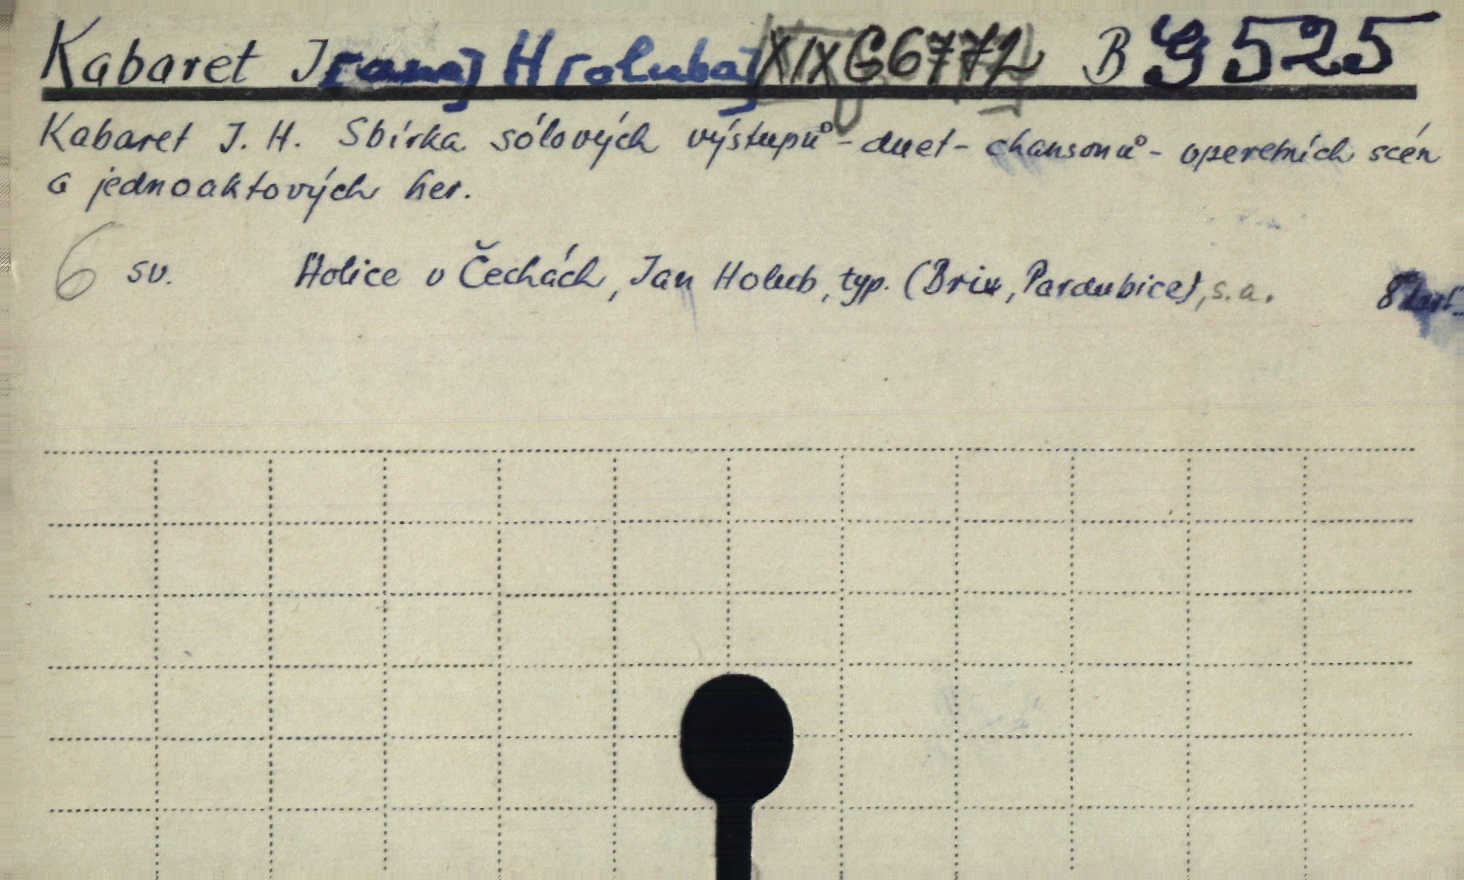 Kabaret J[ana] H[oluba] XIX G 6772 B G 525
Kabaret J. H. Sbírka sólových výstupů - duet - chansonů - operetních scén
a jednoaktových her.
6 sv. Holice v Čechách, Jan Holub, typ. (Brix, Pardubice), s.a. 8°